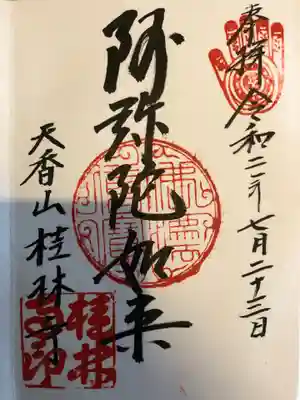 奉拝 令和二年七月二十二日
阿弥陀如来
天香山桂林寺
桂林寺印